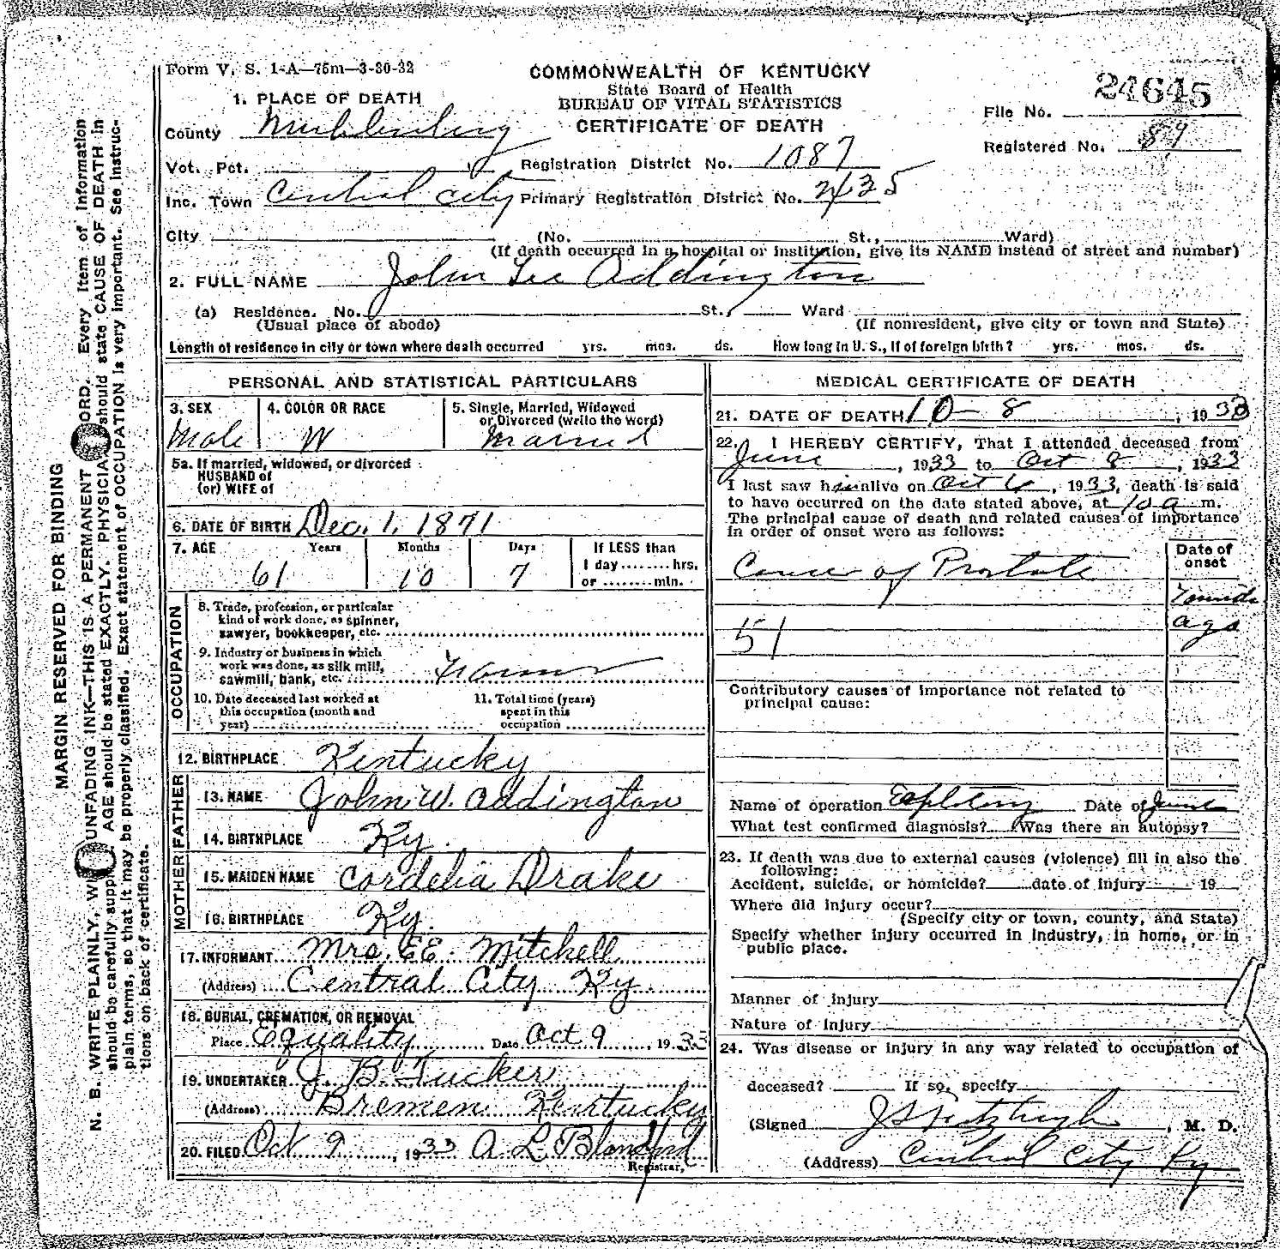 Form V. S. 1-A—75m—3-30-32
COMMONWEALTH OF KENTUCKY
State Board of Health
BUREAU OF VITAL STATISTICS
CERTIFICATE OF DEATH
24645
File No.
Registered No. 89
1. PLACE OF DEATH
County Muhlenberg
Vot. Pct.
Registration District No. 1087
Inc. Town Central City Primary Registration District No. 2435
City (No. St., Ward)
(If death occurred in a hospital or institution, give its NAME instead of street and number)
2. FULL NAME John Lee Addington
(a) Residence. No. St., Ward
(Usual place of abode) (If nonresident, give city or town and State)
Length of residence in city or town where death occurred yrs. mos. ds. How long in U. S., if of foreign birth? yrs. mos. ds.
PERSONAL AND STATISTICAL PARTICULARS
3. SEX 4. COLOR OR RACE 5. Single, Married, Widowed
or Divorced (write the word)
Male W Married
5a. If married, widowed, or divorced
HUSBAND of
(or) WIFE of
6. DATE OF BIRTH Dec. 1, 1871
7. AGE Years Months Days If LESS than
1 day ........ hrs.
or ........ min.
61 10 7
OCCUPATION
8. Trade, profession, or particular
kind of work done, as spinner,
sawyer, bookkeeper, etc.
9. Industry or business in which
work was done, as silk mill,
sawmill, bank, etc. Farmer
10. Date deceased last worked at
this occupation (month and
year)
11. Total time (years)
spent in this
occupation
12. BIRTHPLACE Kentucky
FATHER
13. NAME John W. Addington
14. BIRTHPLACE Ky.
MOTHER
15. MAIDEN NAME Cordelia Drake
16. BIRTHPLACE Ky.
17. INFORMANT Mrs. E E. Mitchell
(Address) Central City Ky.
18. BURIAL, CREMATION, OR REMOVAL
Place Equality Date Oct 9, 1933
19. UNDERTAKER J. B. Tucker
(Address) Bremen Kentucky
20. FILED Oct 9, 1933 A L Blandford
Registrar.
MEDICAL CERTIFICATE OF DEATH
21. DATE OF DEATH 10-8, 1933
22. I HEREBY CERTIFY, That I attended deceased from
June, 1933 to Oct 8, 1933
I last saw him alive on Oct 6, 1933, death is said
to have occurred on the date stated above, at 10 a m.
The principal cause of death and related causes of importance
in order of onset were as follows:
Date of
onset
Cancer of Prostate
ago
51
Contributory causes of importance not related to
principal cause:
Name of operation Date of June
What test confirmed diagnosis? Was there an autopsy?
23. If death was due to external causes (violence) fill in also the
following:
Accident, suicide, or homicide? date of injury 19
Where did injury occur?
(Specify city or town, county, and State)
Specify whether injury occurred in industry, in home, or in
public place.
Manner of injury
Nature of injury
24. Was disease or injury in any way related to occupation of
deceased? If so, specify
(Signed J S Fitzhugh, M. D.
(Address) Central City Ky.
MARGIN RESERVED FOR BINDING
N. B. WRITE PLAINLY, WITH UNFADING INK—THIS IS A PERMANENT RECORD. Every item of information
should be carefully supplied. AGE should be stated EXACTLY. PHYSICIANS should state CAUSE OF DEATH in
plain terms, so that it may be properly classified. Exact statement of OCCUPATION is very important. See instruc-
tions on back of certificate.